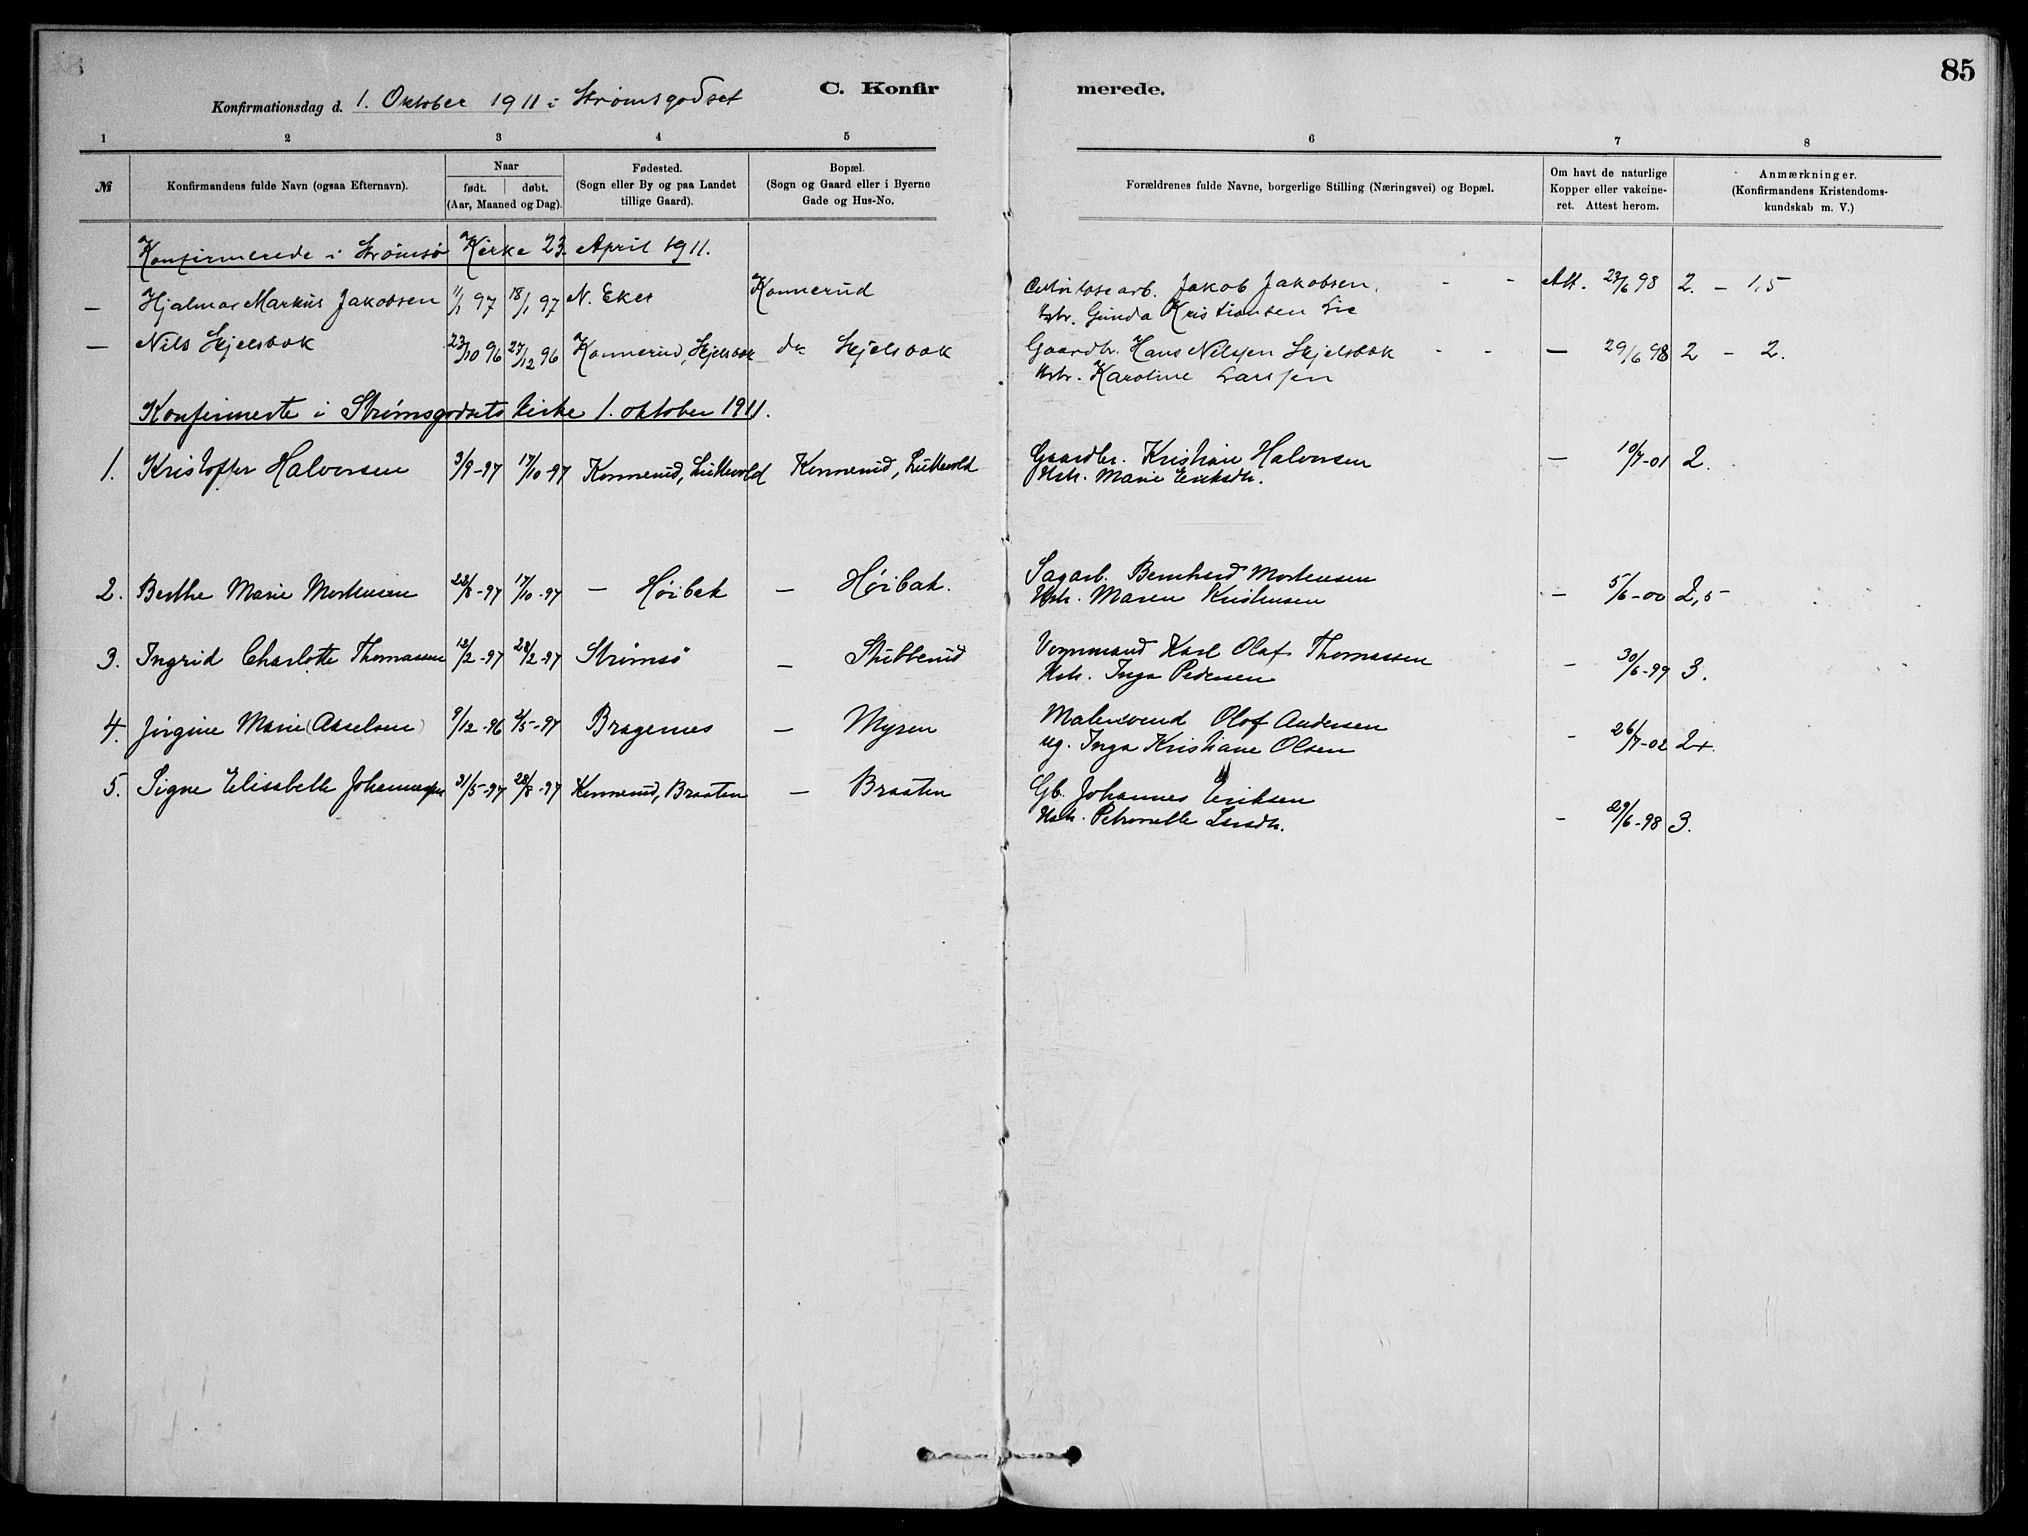 85
C. Konfirmerede.
Konfirmationsdag d. 1. Oktober 1911 i Strømsgodset
1 2 3 4 5 6 7 8
№
Konfirmandens fulde Navn (ogsaa Efternavn).
Naar
født. døbt.
(Aar, Maaned og Dag).
Fødested.
(Sogn eller By og paa Landet
tillige Gaard).
Bopæl.
(Sogn og Gaard eller i Byerne
Gade og Hus-No.
Forældrenes fulde Navne, borgerlige Stilling (Næringsvei) og Bopæl.
Om havt de naturlige
Kopper eller vakcine-
ret. Attest herom.
Anmærkninger.
(Konfirmandens Kristendoms-
kundskab m. V.)
Konfirmerede i Strømsø Kirke 23. April 1911.
— Hjalmar Markus Jakobsen 11/1 97 18/1 97 N. Eker Konnerud arb. Jakob Jakobsen. - - Att. 23/6 98 2. – 1,5
Gunda Kristiansen Lie
— Nils Skjelsbæk 23/10 96 27/12 96 Konnerud, Skjelsbæk do Skjelsbæk Gaardbr. Hans Nilsen Skjelsbæk - - — 29/6 98 2 – 2.
Karoline Larsen
Konfirmerte i Strømsgodsets kirke 1. oktober 1911.
1. Kristoffer Halvorsen 3/9-97 17/10-97 Konnerud, Lukkvold Konnerud, Lukkvold Gaardbr. Kristian Halvorsen — 10/7-01 2.
Hstr. Marie Eriksdtr.
2. Berthe Marie Mortensen 22/8-97 17/10-97 — Høibak — Høibak. Sagarb. Bernhard Mortensen — 5/6-00 2,5
Hstr. Maren Kristensen
3. Ingrid Charlotte Thomassen 12/2-97 28/2-97 Strømsø — Stubberud Vognmand Karl Olaf Thomassen — 30/6-99 3.
Hstr. Inga Pedersen
4. Jørgine Marie (Akselsen) 9/12-96 2/5-97 Bragernes — Myren Malersvend Olaf Andersen - 26/7-02 2+.
ug. Inga Kristiane Olsen
5. Signe Elisabeth Johannessen 31/5-97 28/8-97 Konnerud, Braaten — Braaten Gb. Johannes Eriksen - 29/6-98 3.
Hstr. Petronelle Larsdtr.